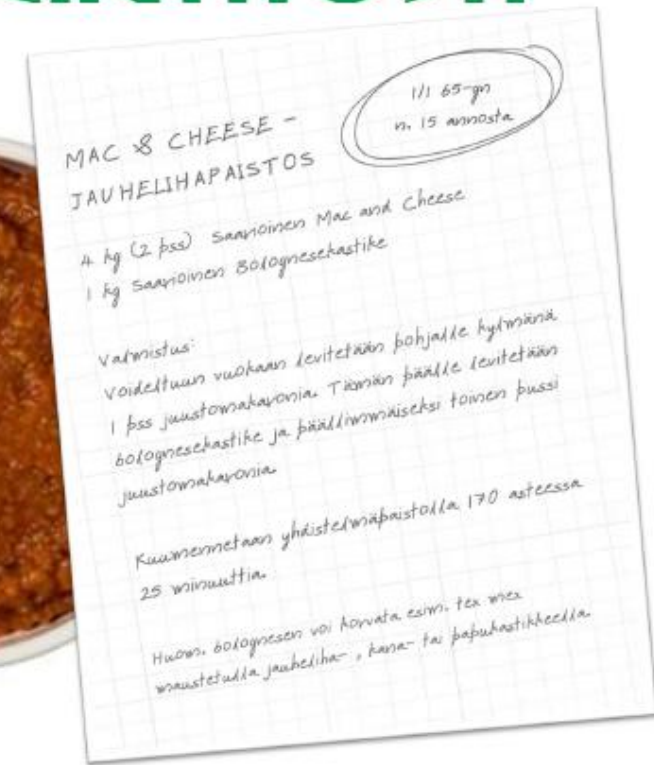 MAC & CHEESE -
JAUHELIHAPAISTOS
1/1 65-gn
n. 15 annosta
4 kg (2 pss) Saarioinen Mac and Cheese
1 kg Saarioinen Bolognesekastike
Valmistus:
Voideltuun vuokaan levitetään pohjalle kylmänä
1 pss juustomakaronia. Tämän päälle levitetään
bolognesekastike ja päällimmäiseksi toinen pussi
juustomakaronia.
Kuumennetaan yhdistelmäpaistolla 170 asteessa
25 minuuttia.
Huom. bolognesen voi korvata esim. tex mex
maustetulla jauheliha-, kana- tai papukastikkeella.